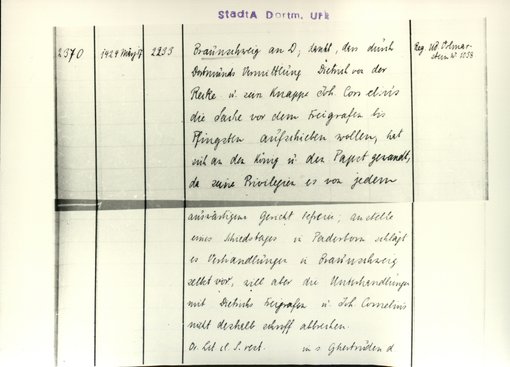 StadtA Dortm. Urk
2370 1429 März 17 2233 Braunschweig an D; dankt, dass durch Reg. UB Volmar-
Dortmunds Vermittlung Dietrich von der stein N. 1058
Recke u. sein Knappe Joh Cornelius
die Sache vor dem Freigrafen bis
Pfingsten aufschieben wollen, hat
sich an den König u den Papst gewandt,
da seine Privilegien es von jedem
auswärtigen Gericht befreien; anstelle
eines Schiedstages in Paderborn schlägt
es Verhandlungen in Braunschweig
selbst vor, will aber die Unterhandlungen
mit Dietrichs Freigrafen u. Joh. Cornelius
nicht deshalb schroff abbrechen.
Or. Lit. cl. S. rest. in s Ghertruden d